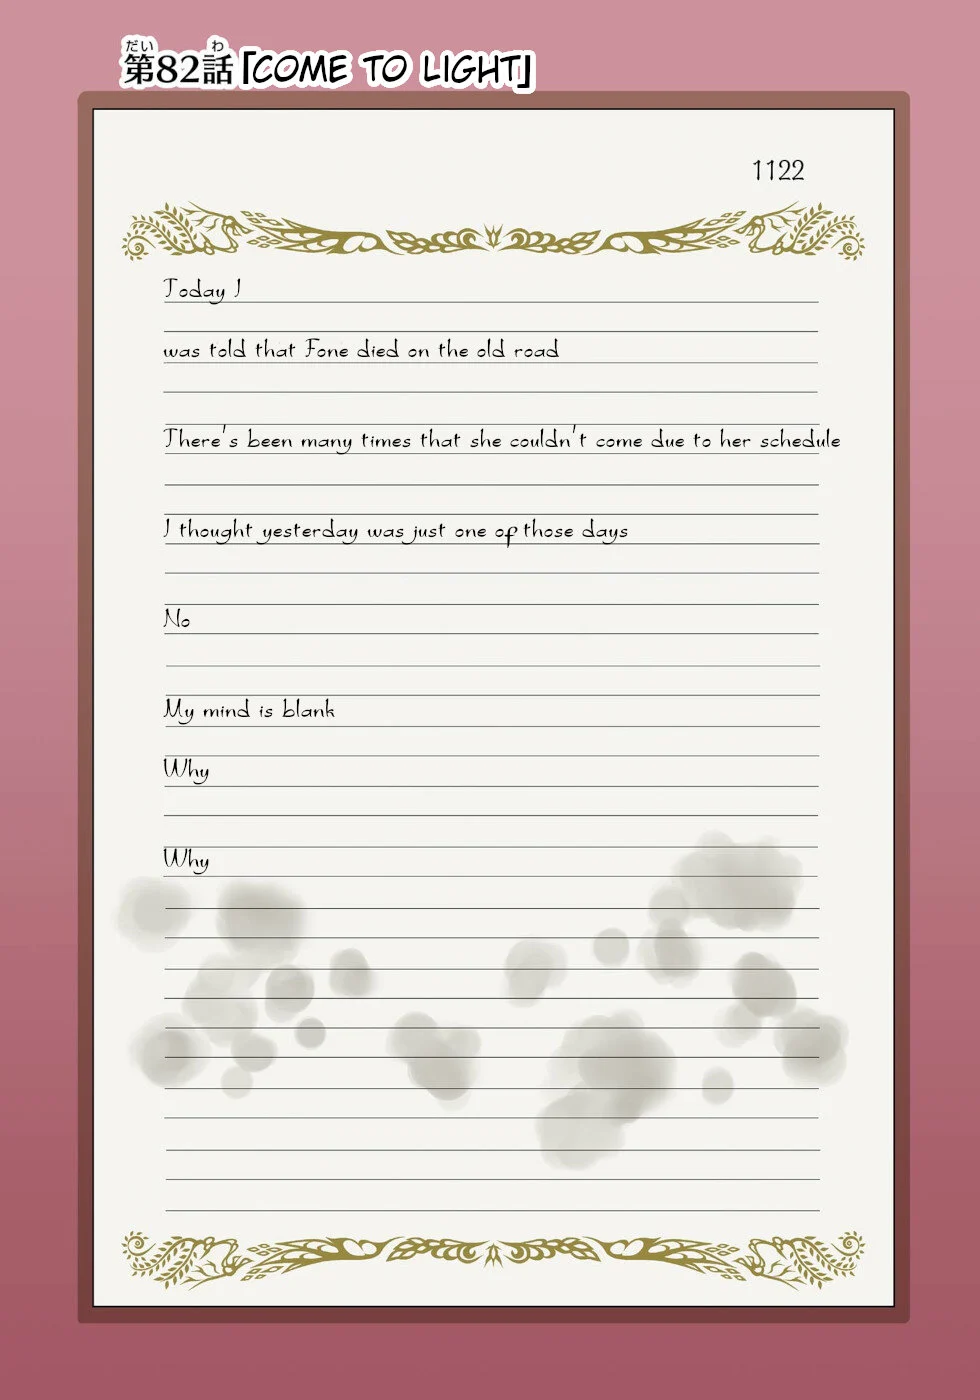 第82話「COME TO LIGHT」
だい わ
1122
Today I
was told that Fone died on the old road
There's been many times that she couldn't come due to her schedule
I thought yesterday was just one of those days
No
My mind is blank
Why
Why